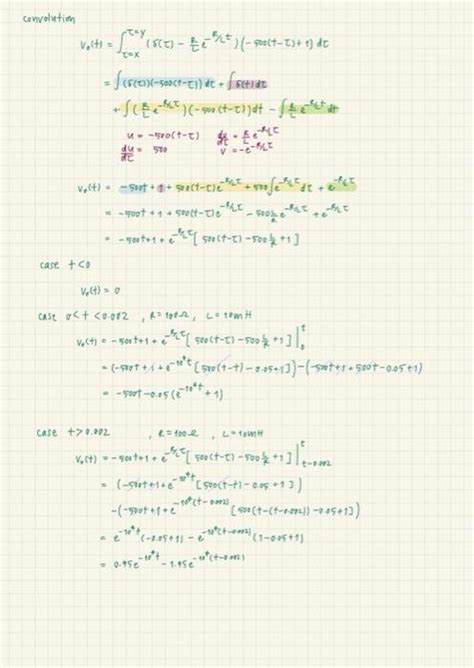 convolution
v₀(t) = ∫_{τ=x}^{τ=y} (δ(τ) - R/L e^{-R/L τ})(-500(t-τ)+1) dτ
= ∫(δ(τ))(-500(t-τ)) dτ + ∫δ(t) dτ
+ ∫(R/L e^{-R/L τ})(-500(t-τ)) dτ - ∫ R/L e^{-R/L t} dτ
u = -500(t-τ) du/dτ = R/L e^{-R/L τ}
du/dτ = 500 v = -e^{-R/L τ}
v₀(t) = -500t + 1 + 500(t-τ)e^{-R/L τ} + 500∫e^{-R/L τ} dτ + e^{-R/L τ}
= -500t + 1 + 500(t-τ)e^{-R/L τ} - 500 L/R e^{-R/L τ} + e^{-R/L τ}
= -500t+1 + e^{-R/L τ}[500(t-τ) - 500 L/R + 1]
case t<0
v₀(t) = 0
case 0<t<0.002 , R=100Ω , L=10mH
v₀(t) = -500t+1 + e^{-R/L τ}[500(t-τ) - 500 L/R + 1]|_0^t
= (-500t+1 + e^{-10⁴t}[500(t-t) - 0.05+1]) - (-500t+1 + 500t - 0.05+1)
= -500t - 0.05(e^{-10⁴t} + 1)
case t>0.002 , R=100Ω , L=10mH
v₀(t) = -500t+1 + e^{-R/L τ}[500(t-τ) - 500 L/R + 1]|_{t-0.002}^t
= (-500t+1 + e^{-10⁴t}[500(t-t) - 0.05+1])
-(-500t+1 + e^{-10⁴(t-0.002)}[500(t-(t-0.002)) - 0.05+1])
= e^{-10⁴t}(-0.05+1) - e^{-10⁴(t-0.002)}(1-0.05+1)
= 0.95e^{-10⁴t} - 1.95e^{-10⁴(t-0.002)}